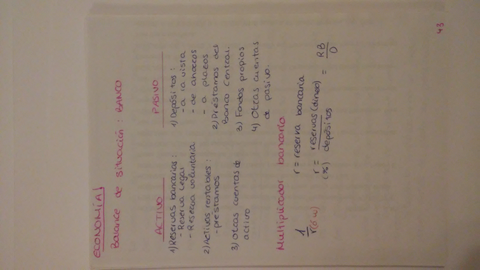 ECONOMÍA
Balance de situación: BANCO
ACTIVO
1) Reservas bancarias:
- Reserva legal
- Reserva voluntaria
2) Activos rentables:
- préstamos
3) Otras cuentas de
activo
PASIVO
1) Depósitos:
- a la vista
- de ahorro
- a plazos
2) Préstamos del
Banco Central.
3) Fondos propios
4) Otras cuentas
de pasivo.
Multiplicador bancario
1
r
r = reserva bancaria
r = reservas (dinero) = RB
(%) depósitos D
43